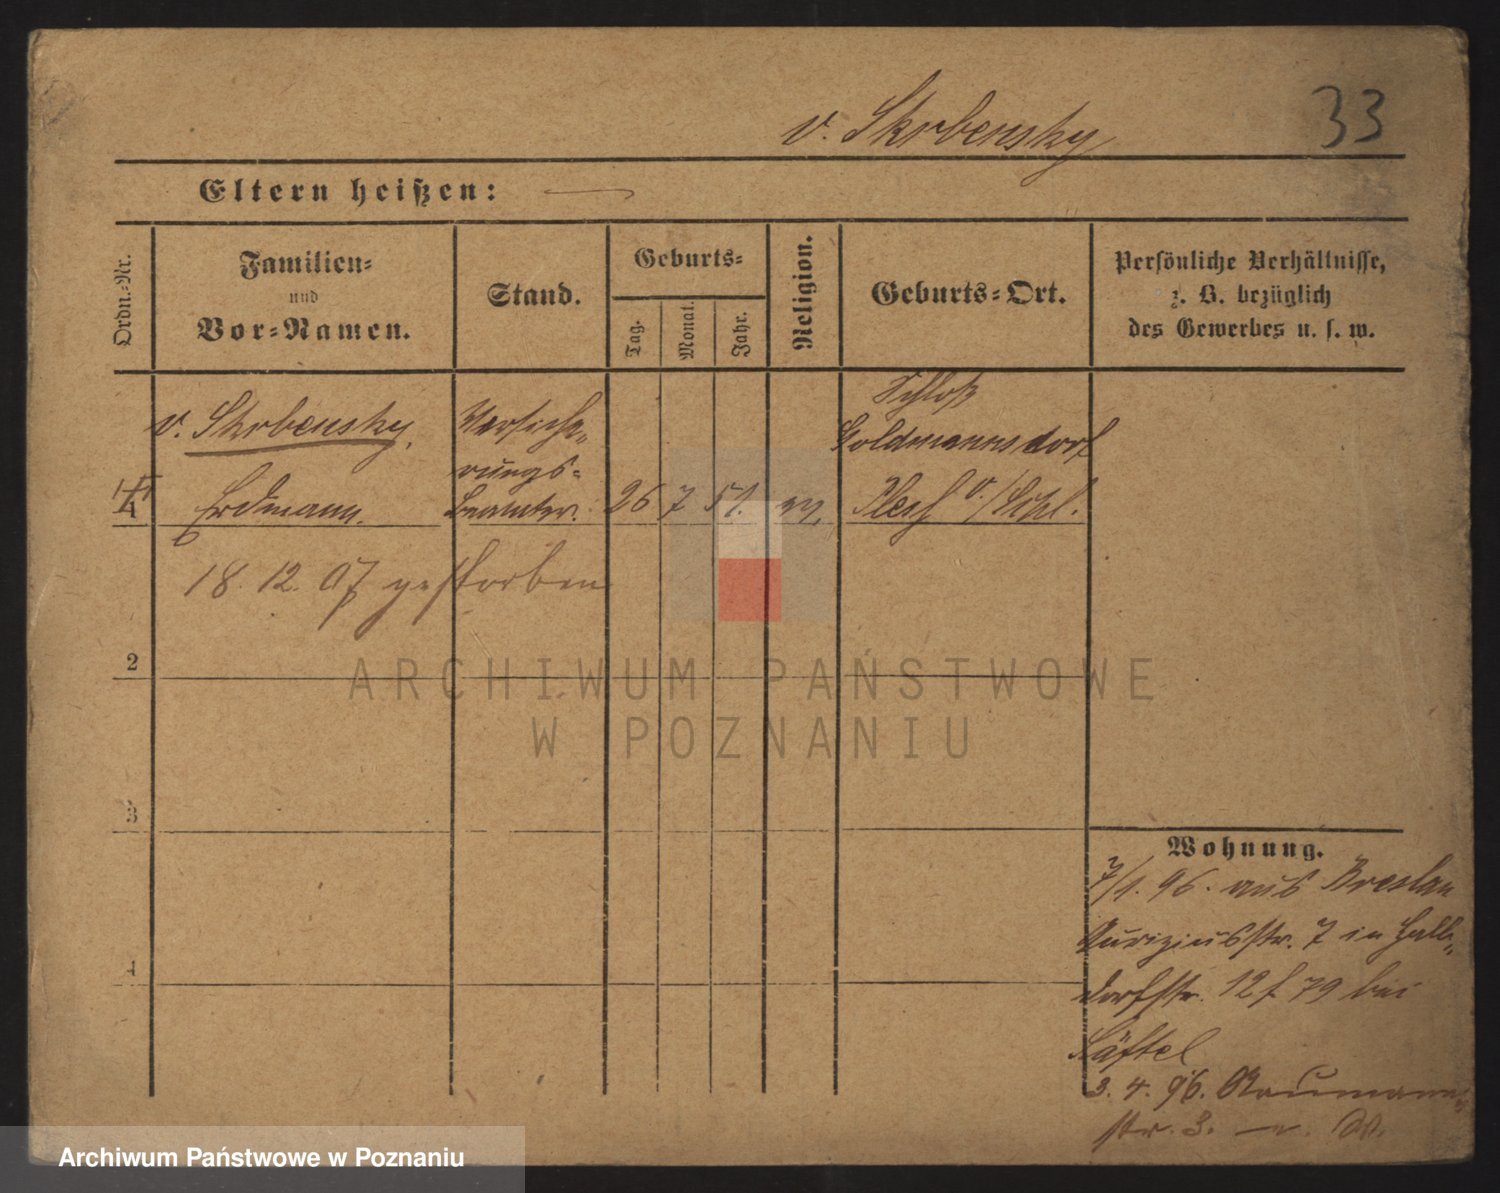 v. Skrbensky
33
Eltern heißen: —
Ordn.-Nr.
Familien-
und
Vor-Namen.
Stand.
Geburts-
Tag.
Monat.
Jahr.
Religion.
Geburts-Ort.
Persönliche Verhältnisse,
z. B. bezüglich
des Gewerbes u. s. w.
v. Skrbensky,
Erdmann.
Versiche-
rungs-
Beamter.
26 7 51.
Schloß
Goldmannsdorf
Pless O./Schl.
1
18. 12. 07 gestorben
2
3
4
Wohnung.
7/1. 96. aus Breslau
7 in Halb-
dorfstr. 12 f 79 bei
3. 4. 96. Naumann
str. 3.
ARCHIWUM PAŃSTWOWE
W POZNANIU
Archiwum Państwowe w Poznaniu